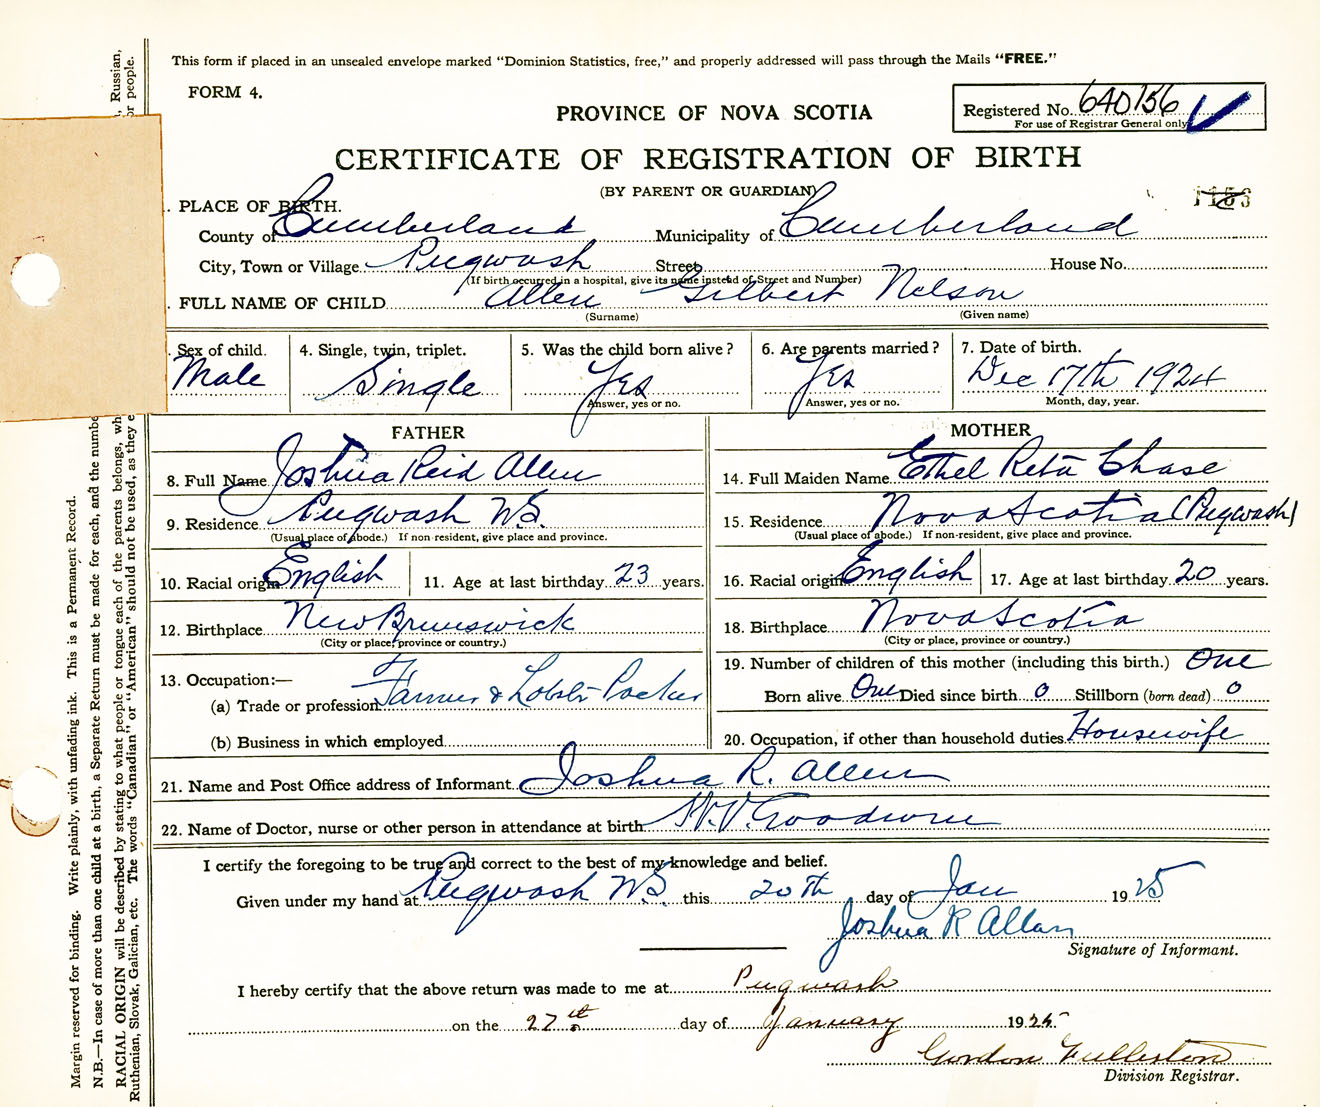 This form if placed in an unsealed envelope marked "Dominion Statistics, free," and properly addressed will pass through the Mails "FREE."
FORM 4.
PROVINCE OF NOVA SCOTIA
Registered No. 640156
For use of Registrar General only
CERTIFICATE OF REGISTRATION OF BIRTH
(BY PARENT OR GUARDIAN)
. PLACE OF BIRTH.
County of Cumberland Municipality of Cumberland
City, Town or Village Pugwash Street House No.
(If birth occurred in a hospital, give its name instead of Street and Number)
. FULL NAME OF CHILD Allen Gilbert Nelson
(Surname) (Given name)
. Sex of child. 4. Single, twin, triplet. 5. Was the child born alive? 6. Are parents married? 7. Date of birth.
Male Single Yes Yes Dec 17th 1924
Answer, yes or no. Answer, yes or no. Month, day, year.
FATHER
8. Full Name Joshua Reid Allen
9. Residence Pugwash N.S.
(Usual place of abode.) If non-resident, give place and province.
10. Racial origin English 11. Age at last birthday 23 years.
12. Birthplace New Brunswick
(City or place, province or country.)
13. Occupation:—
(a) Trade or profession Farmer & Lobster Packer
(b) Business in which employed
MOTHER
14. Full Maiden Name Ethel Reta Chase
15. Residence Nova Scotia (Pugwash)
(Usual place of abode.) If non-resident, give place and province.
16. Racial origin English 17. Age at last birthday 20 years.
18. Birthplace Nova Scotia
(City or place, province or country.)
19. Number of children of this mother (including this birth.) One
Born alive One Died since birth 0 Stillborn (born dead) 0
20. Occupation, if other than household duties Housewife
21. Name and Post Office address of Informant Joshua R. Allen
22. Name of Doctor, nurse or other person in attendance at birth
I certify the foregoing to be true and correct to the best of my knowledge and belief.
Given under my hand at Pugwash N.S. this 20th day of Jan 1925
Joshua R Allan
Signature of Informant.
I hereby certify that the above return was made to me at Pugwash
on the 27th day of January 1925
Gordon Fullerton
Division Registrar.
Margin reserved for binding. Write plainly, with unfading ink. This is a Permanent Record.
N.B.—In case of more than one child at a birth, a Separate Return must be made for each, and the numbe
RACIAL ORIGIN will be described by stating to what people or tongue each of the parents belongs, wh
, Russian,
Ruthenian, Slovak, Galician, etc. The words "Canadian" or "American" should not be used, as they e
or people.